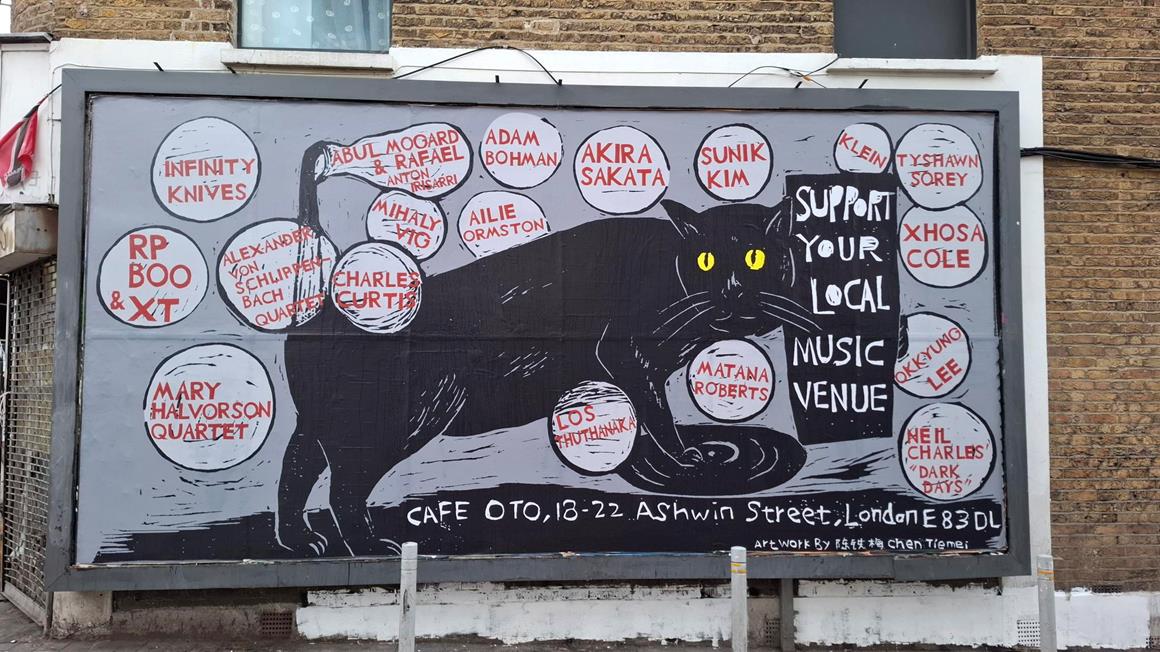 INFINITY
KNIVES
ABUL MOGARD
& RAFAEL
ANTON
IRISARRI
ADAM
BOHMAN
AKIRA
SAKATA
SUNIK
KIM
KLEIN
TYSHAWN
SOREY
MIHALY
VIG
AILIE
ORMSTON
RP
BOO
& XT
ALEXANDER
VON
SCHLIPPEN-
BACH
QUARTET
CHARLES
CURTIS
SUPPORT
YOUR
LOCAL
MUSIC
VENUE
XHOSA
COLE
MARY
HALVORSON
QUARTET
LOS
THUTHANAKA
MATANA
ROBERTS
OKKYUNG
LEE
NEIL
CHARLES'
"DARK
DAYS"
CAFE OTO, 18-22 Ashwin Street, London E8 3DL
Artwork By 陈铁梅 Chen Tiemei